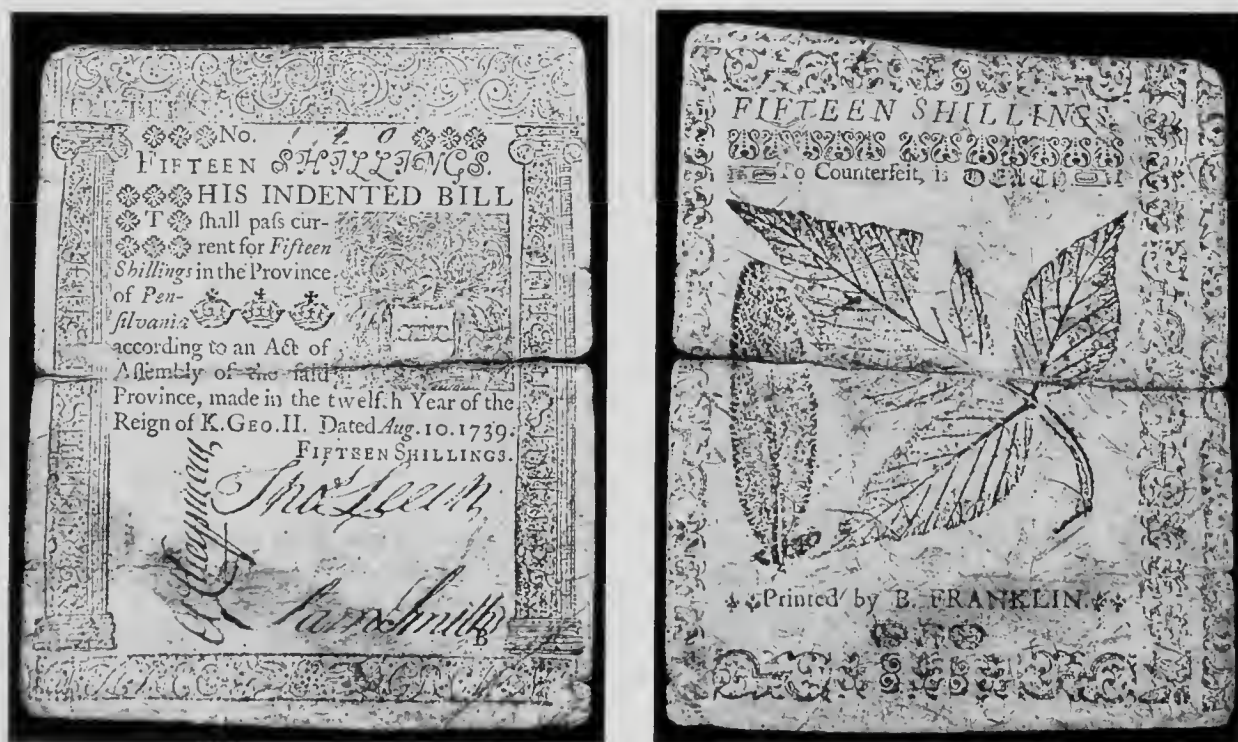 No. 140
FIFTEEN SHILLINGS.
HIS INDENTED BILL
T ſhall paſs cur-
rent for Fifteen
Shillings in the Province
of Pen-
ſilvania
according to an Act of
Aſſembly of the ſaid
Province, made in the twelfth Year of the
Reign of K. GEO. II. Dated Aug. 10. 1739.
FIFTEEN SHILLINGS.
Thoˢ Leech
Sam Smith
B
FIFTEEN SHILLINGS.
To Counterfeit, is DEATH
Printed by B. FRANKLIN